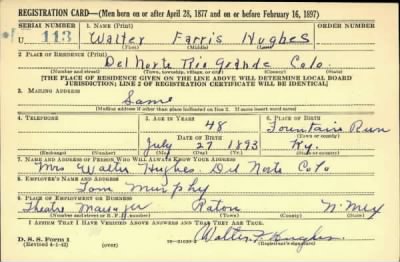 REGISTRATION CARD—(Men born on or after April 28, 1877 and on or before February 16, 1897)
SERIAL NUMBER
1. NAME (Print)
ORDER NUMBER
U 113
Walter Farris Hughes
(First) (Middle) (Last)
2. PLACE OF RESIDENCE (Print)
Del Norte Rio Grande Colo.
(Number and street) (Town, township, village, or city) (County) (State)
[THE PLACE OF RESIDENCE GIVEN ON THE LINE ABOVE WILL DETERMINE LOCAL BOARD
JURISDICTION; LINE 2 OF REGISTRATION CERTIFICATE WILL BE IDENTICAL]
3. MAILING ADDRESS
Same
[Mailing address if other than place indicated on line 2. If same insert word same]
4. TELEPHONE
5. AGE IN YEARS
6. PLACE OF BIRTH
48
Fountain Run
DATE OF BIRTH
(Town or county)
July 27 1893
Ky.
(Exchange) (Number)
(Mo.) (Day) (Yr.)
(State or country)
7. NAME AND ADDRESS OF PERSON WHO WILL ALWAYS KNOW YOUR ADDRESS
Mrs Walter Hughes Del Norte Colo
8. EMPLOYER'S NAME AND ADDRESS
Tom Murphy
9. PLACE OF EMPLOYMENT OR BUSINESS
Theatre Manager Raton N. Mex
(Number and street or R. F. D. number) (Town) (County) (State)
I AFFIRM THAT I HAVE VERIFIED ABOVE ANSWERS AND THAT THEY ARE TRUE.
D. S. S. Form 1
(Revised 4-1-42) (over)
Walter F Hughes
(Registrant's signature)